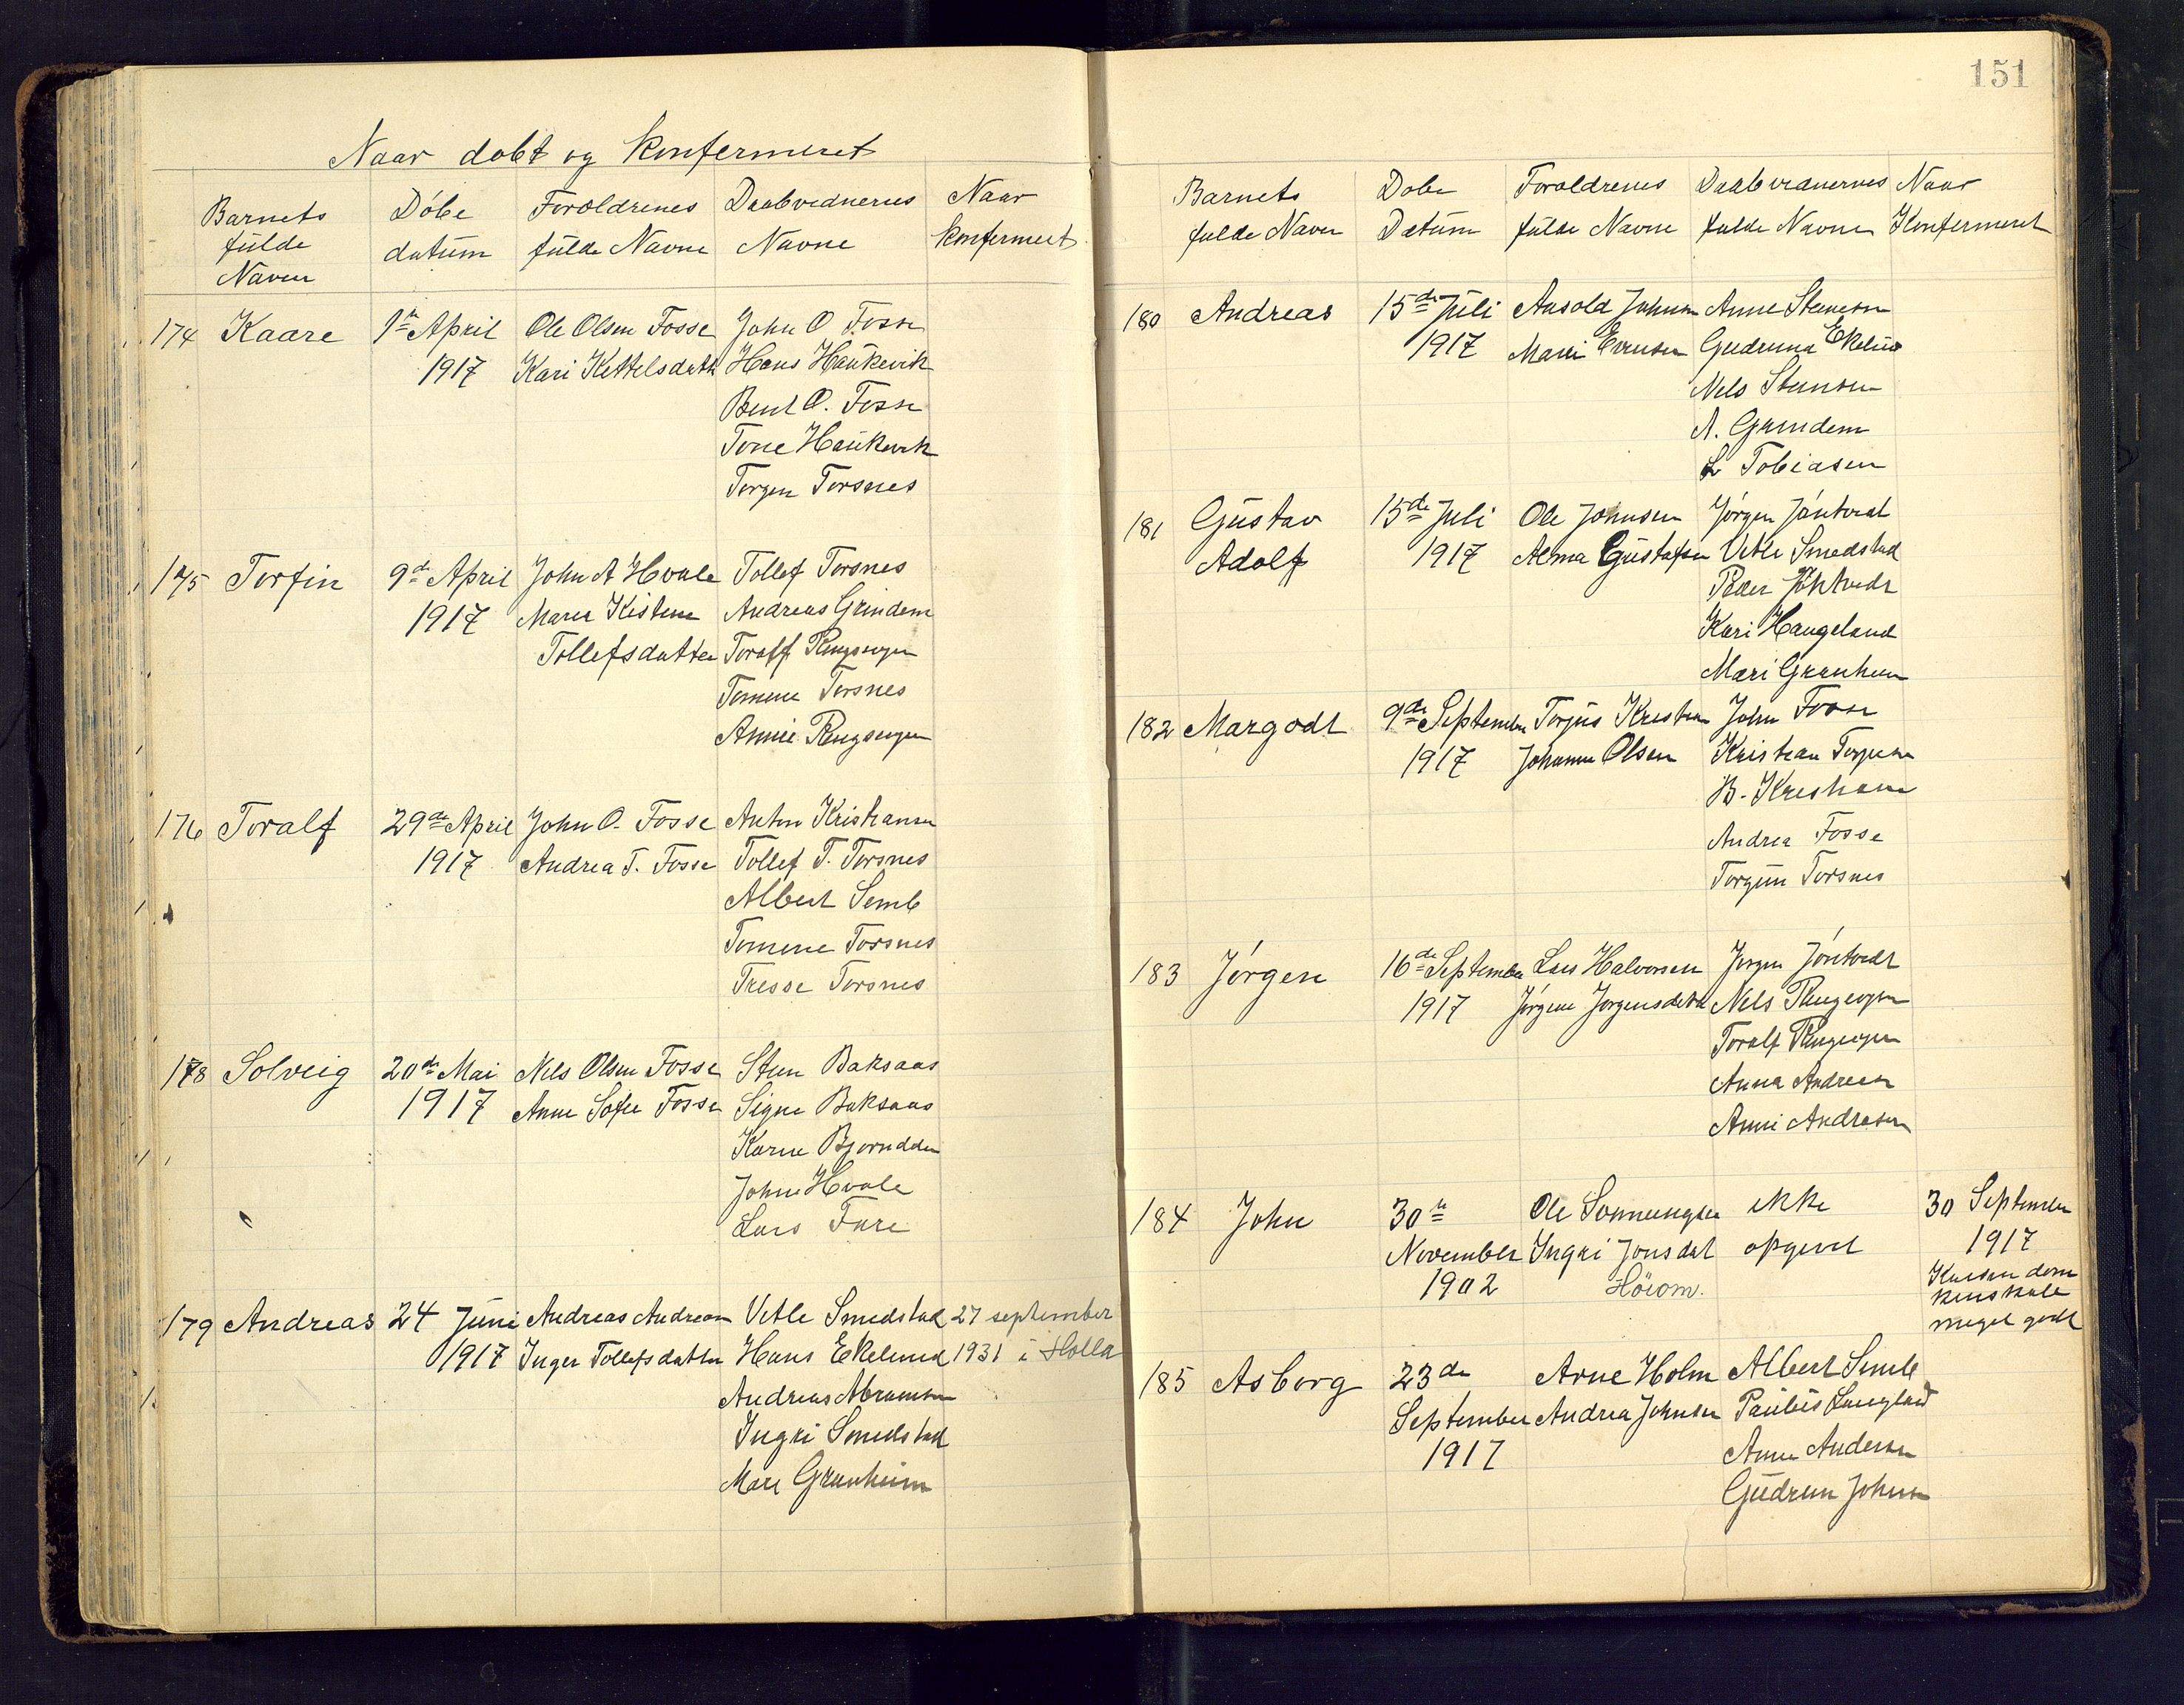 Naar dobt og Konfermeret
Barnets fulde Navn
Döbe datum
Foroldrenes fulde Navne
Daabvidnernes Navne
Naar Konfermert
174 Kaare
1te April 1917
Ole Olsen Fosse
Kari Kettelsdatt
John O Fosse
Hans Haukevik
Bent O. Fosse
Tone Haukevik
Torgen Torsnes
175 Torfin
9de April 1917
John A Hvale
Maria Kistene
Tollefsdatter
Tollef Torsnes
Andreas Grindem
Toralf
Tomene Torsnes
Annie
176 Toralf
29de April 1917
John O. Fosse
Andrea T. Fosse
Anton Kristiansen
Tollef T. Torsnes
Albert Semb
Tomene Torsnes
Tresse Torsnes
178 Solveig
20de Mai 1917
Nels Olsen Fosse
Anne Sofie Fosse
Sten Baksaas
Signe Baksaas
Karne
John Hvale
Lars Fare
179 Andreas
24 Juni 1917
Andreas Andreasn
Inger Tollefsdatter
Vetle Smedstad
Hans Ekelund
Andreas Abramsen
Ingri Smedstad
Mari Granheim
27 september
1931 i Holla
151
Barnets fulde Navn
Dobe Datum
Foroldrenes fulde Navne
Daabvidnernes fulde Navne
Naar Konfermeret
180 Andreas
15de Juli 1917
Ansold Johnsn
Marie Evensen
Anne Stensen
Gudruna Ekelun
Nels Stensen
A. Grindem
L Tobiasen
181 Gustav Adolf
15de Juli 1917
Ole Johnsen
Alma Gustafsen
Jörgen Jöntvedt
Vetle Smedstad
Peder
Kari Haugeland
Mari Granheim
182 Margodt
9de September 1917
Torjus Kristen
Johanne Olsen
John Fosse
Kristian Torjusen
B. Kristiansen
Andrea Fosse
Torgun Torsnes
183 Jörgen
16de September 1917
Lars Halvorsen
Jörgine Jorgensdatt
Jorgen Jöntvedt
Nels
Toralf
Anna Andresen
Anni Andresen
184 John
30te November 1902
Ole
Ingri Jonsdat
Höiom.
ikke opgivet
30 September
1917
Kristendom
kunskale
meget godt
185 Asborg
23de September 1917
Arne Holm
Andrea Johnsen
Albert Semb
Paulus Langland
Anne Andersen
Gudrun Johnsn